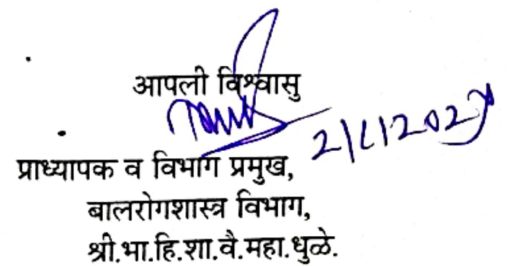 आपली विश्वासु
प्राध्यापक व विभाग प्रमुख,
बालरोगशास्त्र विभाग,
श्री.भा.हि.शा.वै.महा.धुळे.